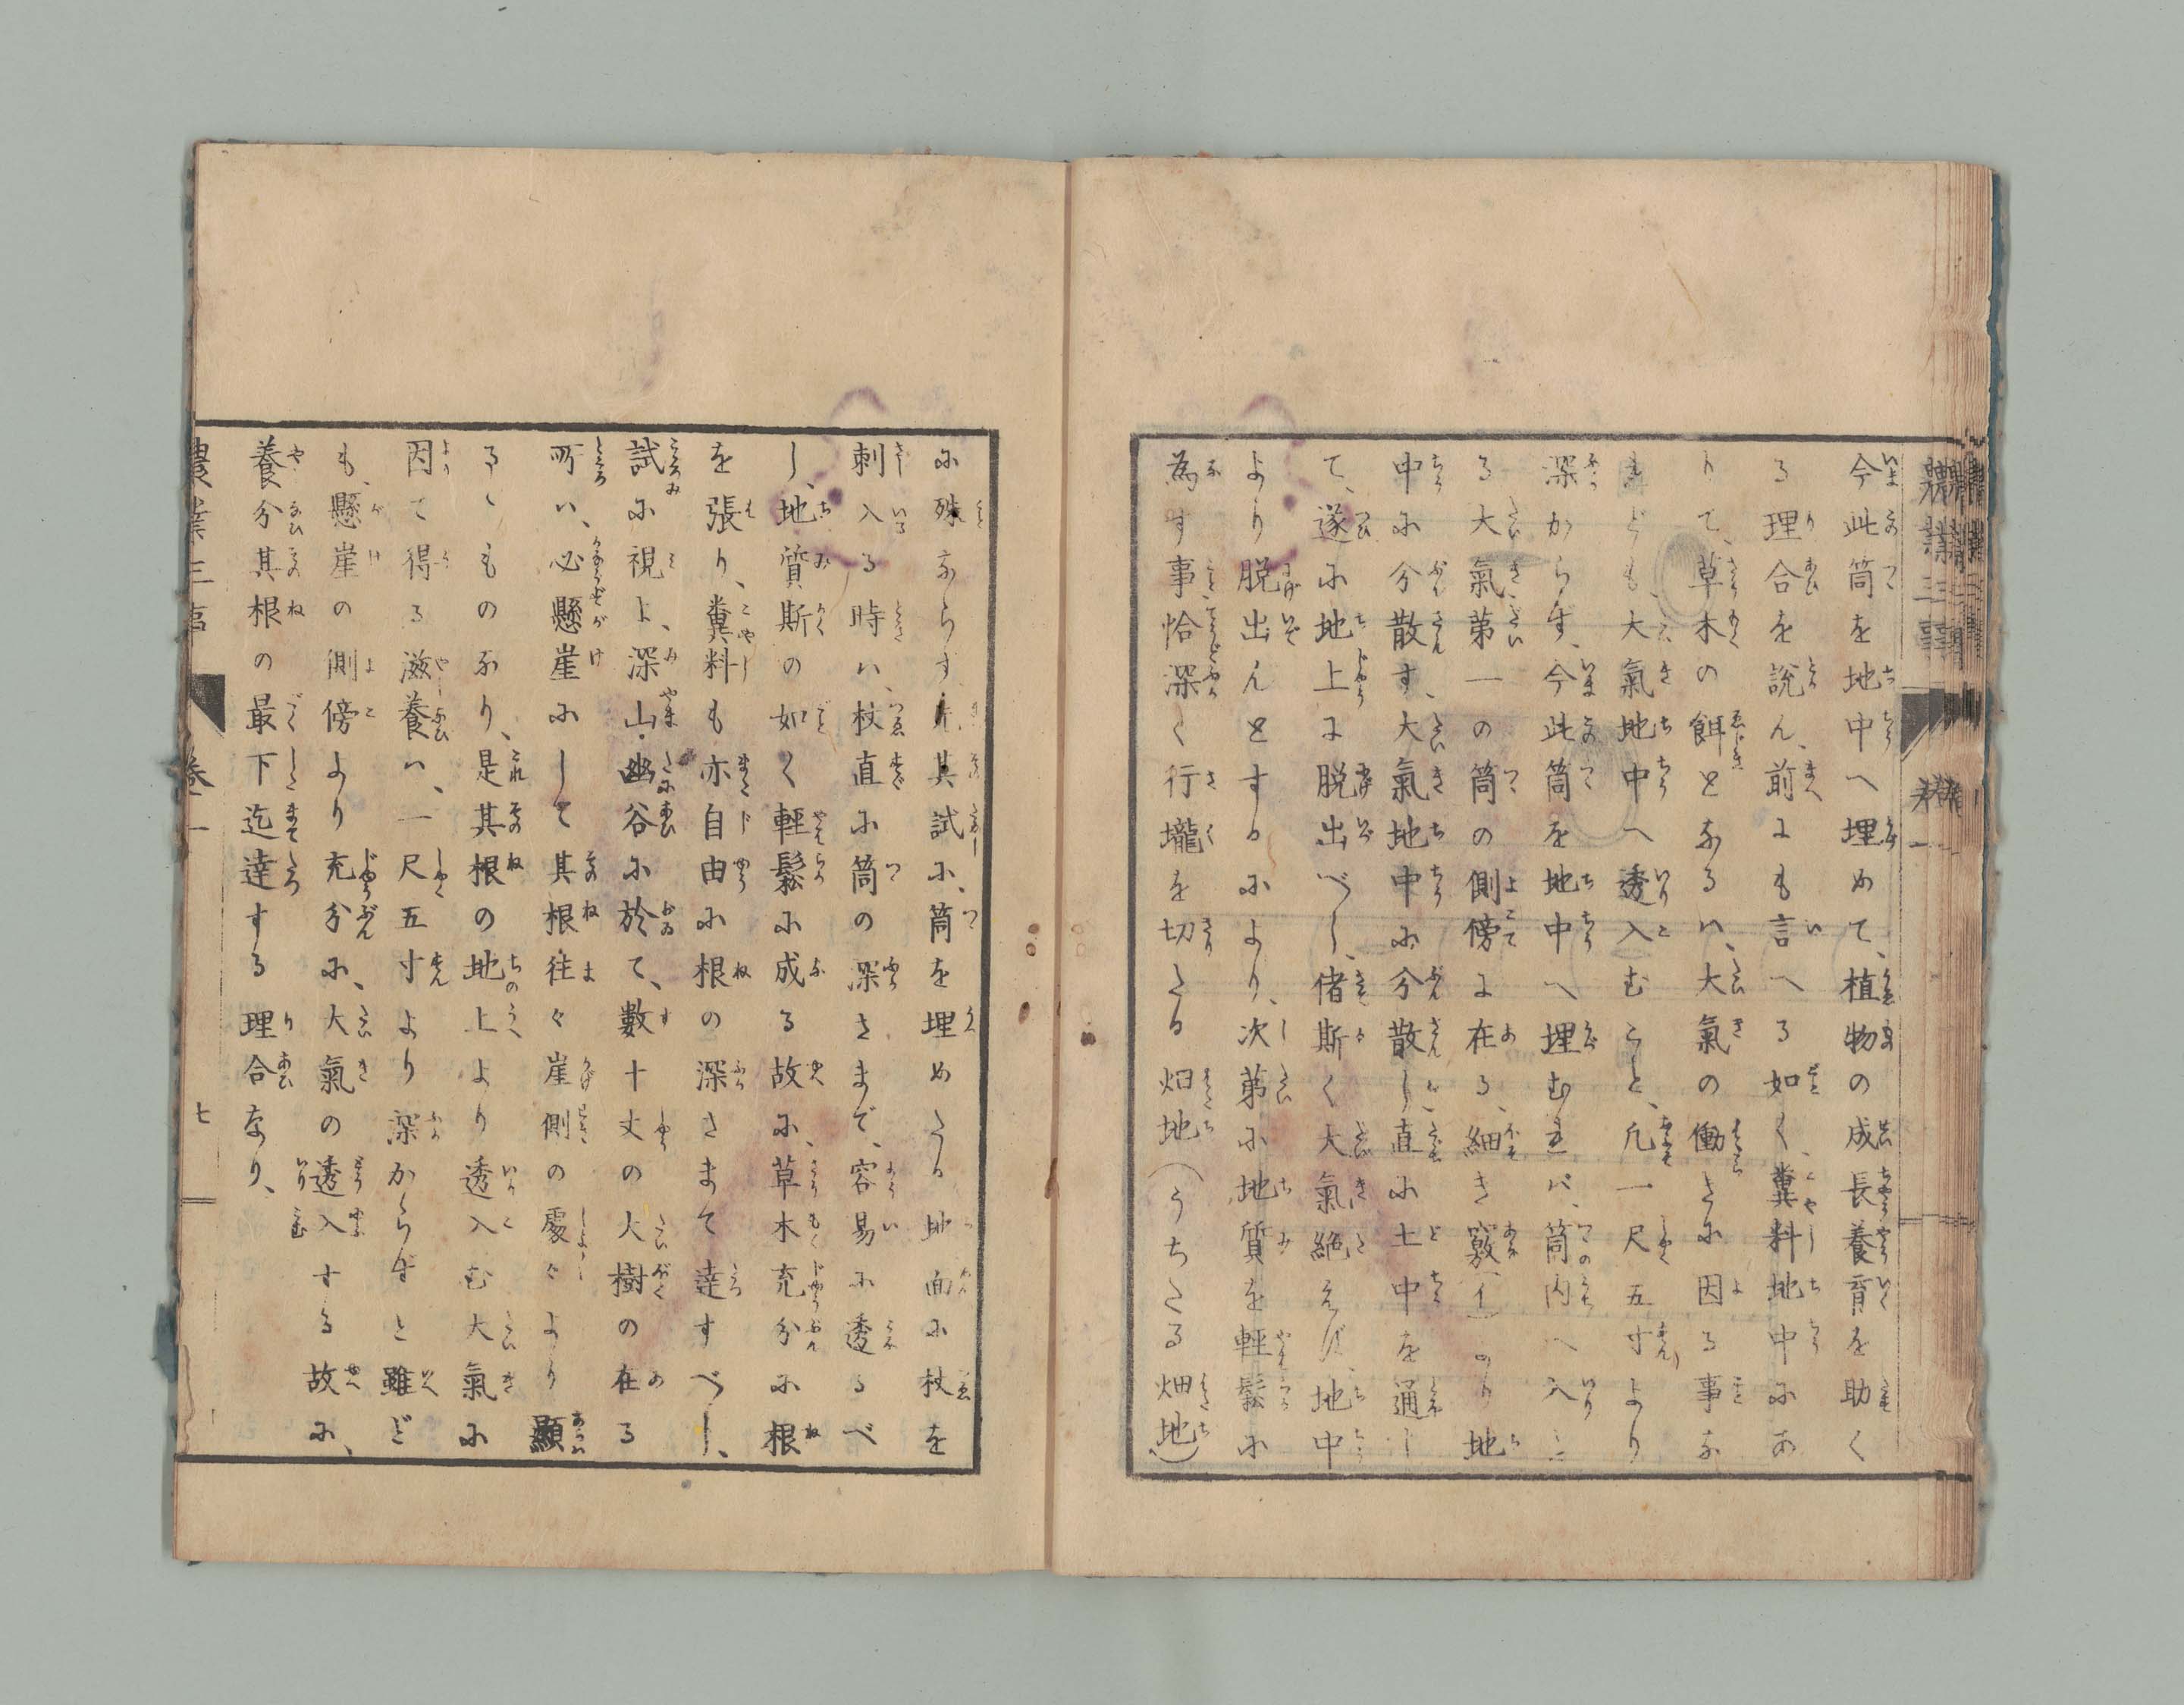 今此筒を地中へ埋めて、植物の成長養育を助く
る理合を説ん、前にも言へる如く、糞料地中にあ
りて、草木の餌となるハ、大氣の働きに因る事な
れども、大氣地中へ透入むこと、凡一尺五寸より
深からず、今此筒を地中へ埋むれバ、筒内へ入
る大氣第一の筒の側傍に在る、細き竅（イ）のり地
中に分散す、大氣地中に分散し、直に土中を通し
て、遂に地上に脱出べし、偖斯く大氣絶えず、地中
より脱出んとするにより、次第に地質を輕鬆に
為す事恰深く行壠を切たる畑地（うちたる畑地）
に殊ならす、其試に、筒を埋めたる地面に杖を
刺入る時ハ、杖直に筒の深さまで、容易に透るべ
し、地質斯の如く輕鬆に成る故に、草木充分に根
を張り、糞料も亦自由に根の深さまて達すべし、
試に視よ、深山・幽谷に於て、數十丈の大樹の在る
所ハ、必懸崖にして其根往々崖側の處々より顯
るゝものなり、是其根の地上より透入む大氣に
因て得る滋養ハ、一尺五寸より深からずと雖ど
も、懸崖の側傍より充分に、大氣の透入する故に、
養分其根の最下迄達する理合なり、
農業三事 卷一 七